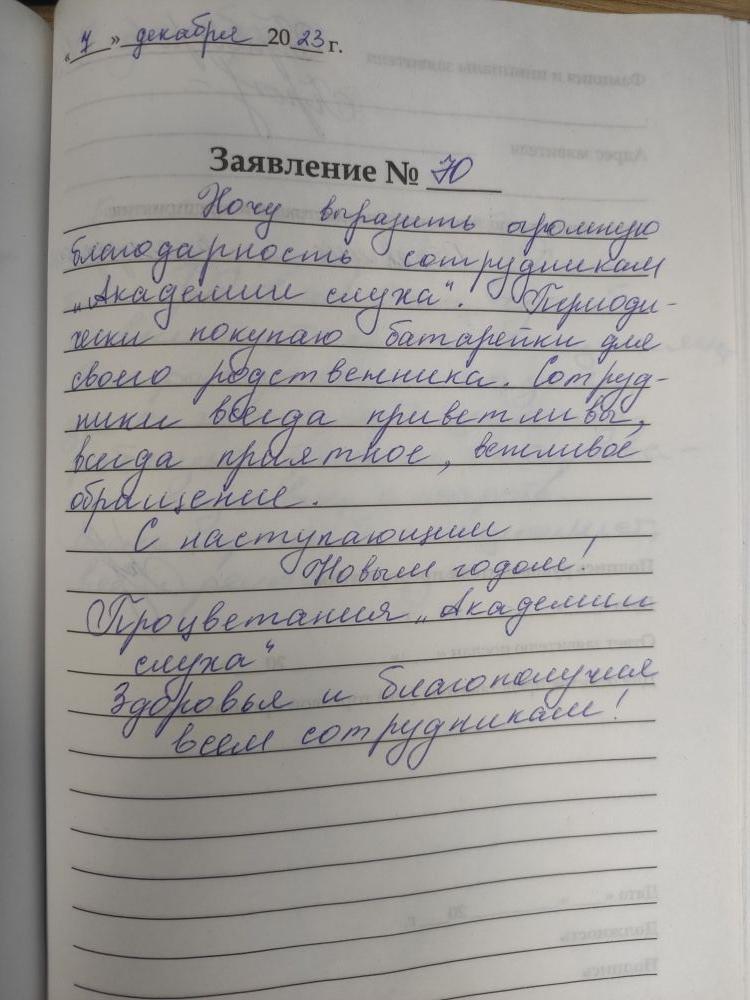 « 7 » декабря 2023 г.
Заявление № 70
Хочу выразить огромную
благодарность сотрудникам
„Академии слуха“. Периоди-
чески покупаю батарейки для
своего родственника. Сотруд-
ники всегда приветливы,
всегда приятное, вежливое
обращение.
С наступающим
Новым годом!
Процветания „Академии
слуха“
Здоровья и благополучия
всем сотрудникам!